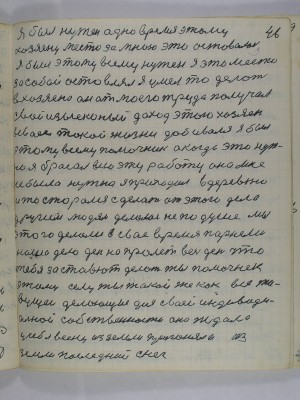 46
я был нужен адно время этому
хозяену место за мною это оставалс
я был этому всему нужен я это место
за собой оставлял я умел то делат
а хозяено он от моего труда получал
свой извлеконый доход этого хозяен
такой жизни добивалa я был
этому всему помочник а когда это нуж-
но я бросал всю эту работу она мне
не была нужно я приходил в деревню
и то старался сделат от этого дела
другим людям делалас не по душе мы
этого делали в свае время парнеми
нашо дело ден на пролет вес ден это
тебя заставют делат ты помочнек
этому селу ты такой же как все те-
делающие для своей индевиди-
алной собственности оно ждало
к себе весну из земли прогоняла из
земли последний снег